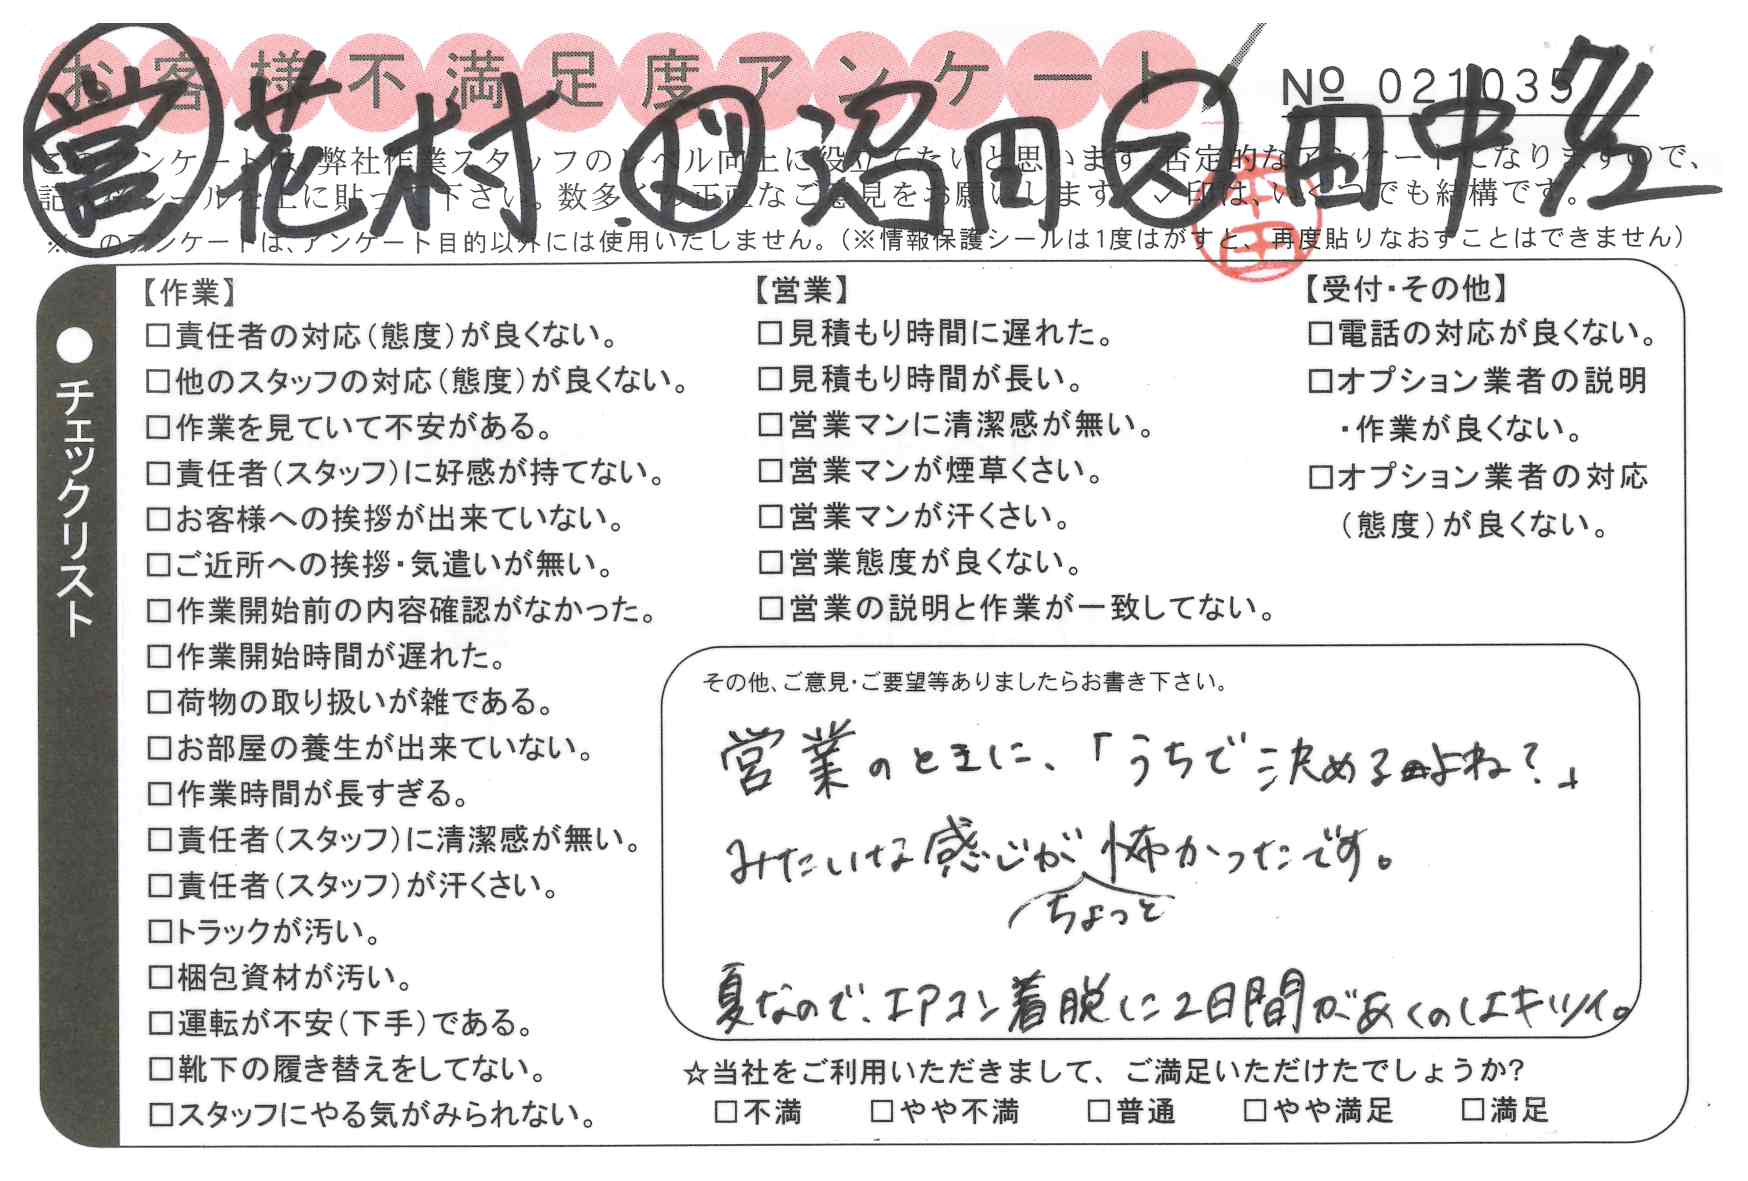 お客様不満足度アンケート
№ 021035
営 花村 沼田 田中 7/2
このアンケートは、弊社作業スタッフのレベル向上に役立てたいと思います。否定的なアンケートになりますので、
記入後シールを上に貼って下さい。数多くの正直なご意見をお願いします。✓印は、いくつでも結構です。
※このアンケートは、アンケート目的以外には使用いたしません。(※情報保護シールは1度はがすと、再度貼りなおすことはできません)
●チェックリスト
【作業】
□責任者の対応(態度)が良くない。
□他のスタッフの対応(態度)が良くない。
□作業を見ていて不安がある。
□責任者(スタッフ)に好感が持てない。
□お客様への挨拶が出来ていない。
□ご近所への挨拶・気遣いが無い。
□作業開始前の内容確認がなかった。
□作業開始時間が遅れた。
□荷物の取り扱いが雑である。
□お部屋の養生が出来ていない。
□作業時間が長すぎる。
□責任者(スタッフ)に清潔感が無い。
□責任者(スタッフ)が汗くさい。
□トラックが汚い。
□梱包資材が汚い。
□運転が不安(下手)である。
□靴下の履き替えをしてない。
□スタッフにやる気がみられない。
【営業】
□見積もり時間に遅れた。
□見積もり時間が長い。
□営業マンに清潔感が無い。
□営業マンが煙草くさい。
□営業マンが汗くさい。
□営業態度が良くない。
□営業の説明と作業が一致してない。
【受付・その他】
□電話の対応が良くない。
□オプション業者の説明
・作業が良くない。
□オプション業者の対応
(態度)が良くない。
その他、ご意見・ご要望等ありましたらお書き下さい。
営業のときに、「うちで決めるよね?」
みたいな感じが怖かったです。
ちょっと
夏なので、エアコン着脱に2日間があくのはキツイ。
☆当社をご利用いただきまして、ご満足いただけたでしょうか?
□不満 □やや不満 □普通 □やや満足 □満足